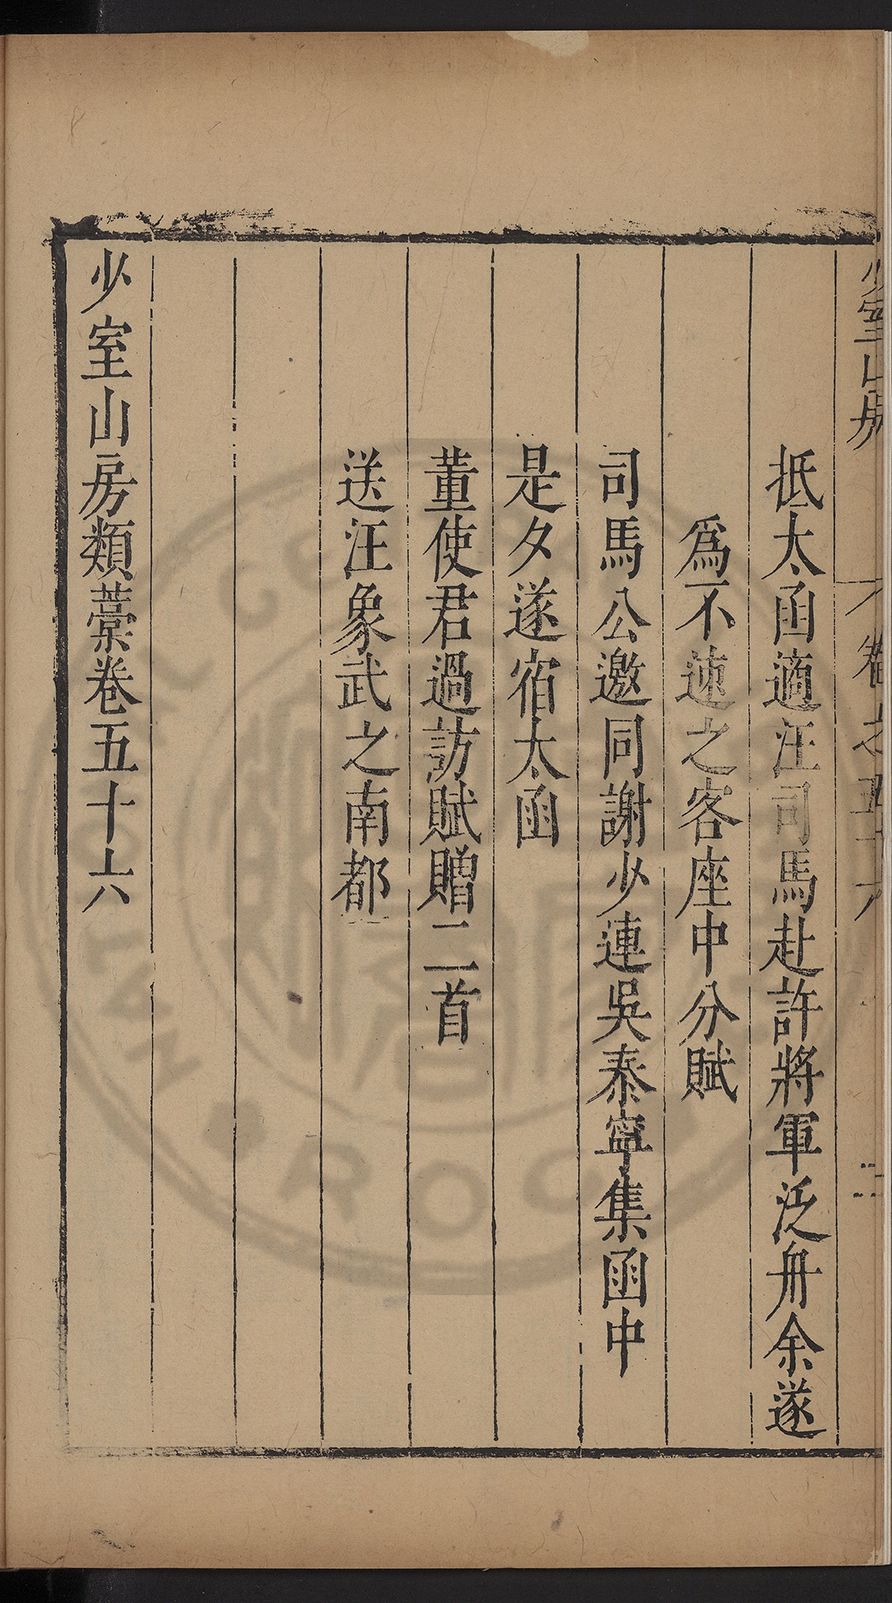 少室山房
卷之五十六
抵太函適汪司馬赴許將軍泛舟余遂
爲不速之客座中分賦
司馬公邀同謝少連吳泰寧集函中
是夕遂宿太函
董使君過訪賦贈二首
送汪象武之南都
少室山房類藁卷五十六